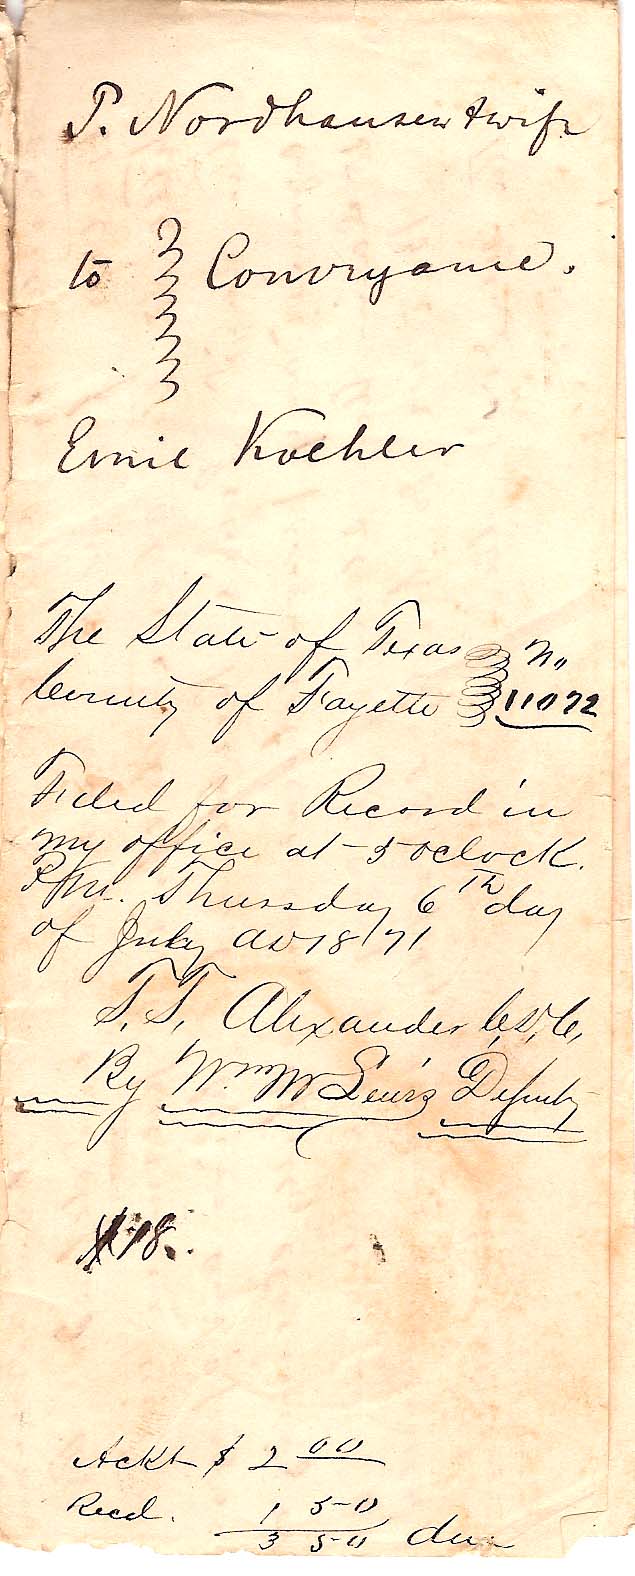 P. Nordhausen & wife
to Conveyance.
Emil Koehler
The State of Texas No
County of Fayette 11072
Filed for Record in
my office at 5 oclock.
P.M. Thursday 6th day
of July AD 1871
T. T. Alexander C, D, C,
By Wm W Lewis Deputy
18.
Ackt $ 2 00
Recd. 1 50
3 50 due